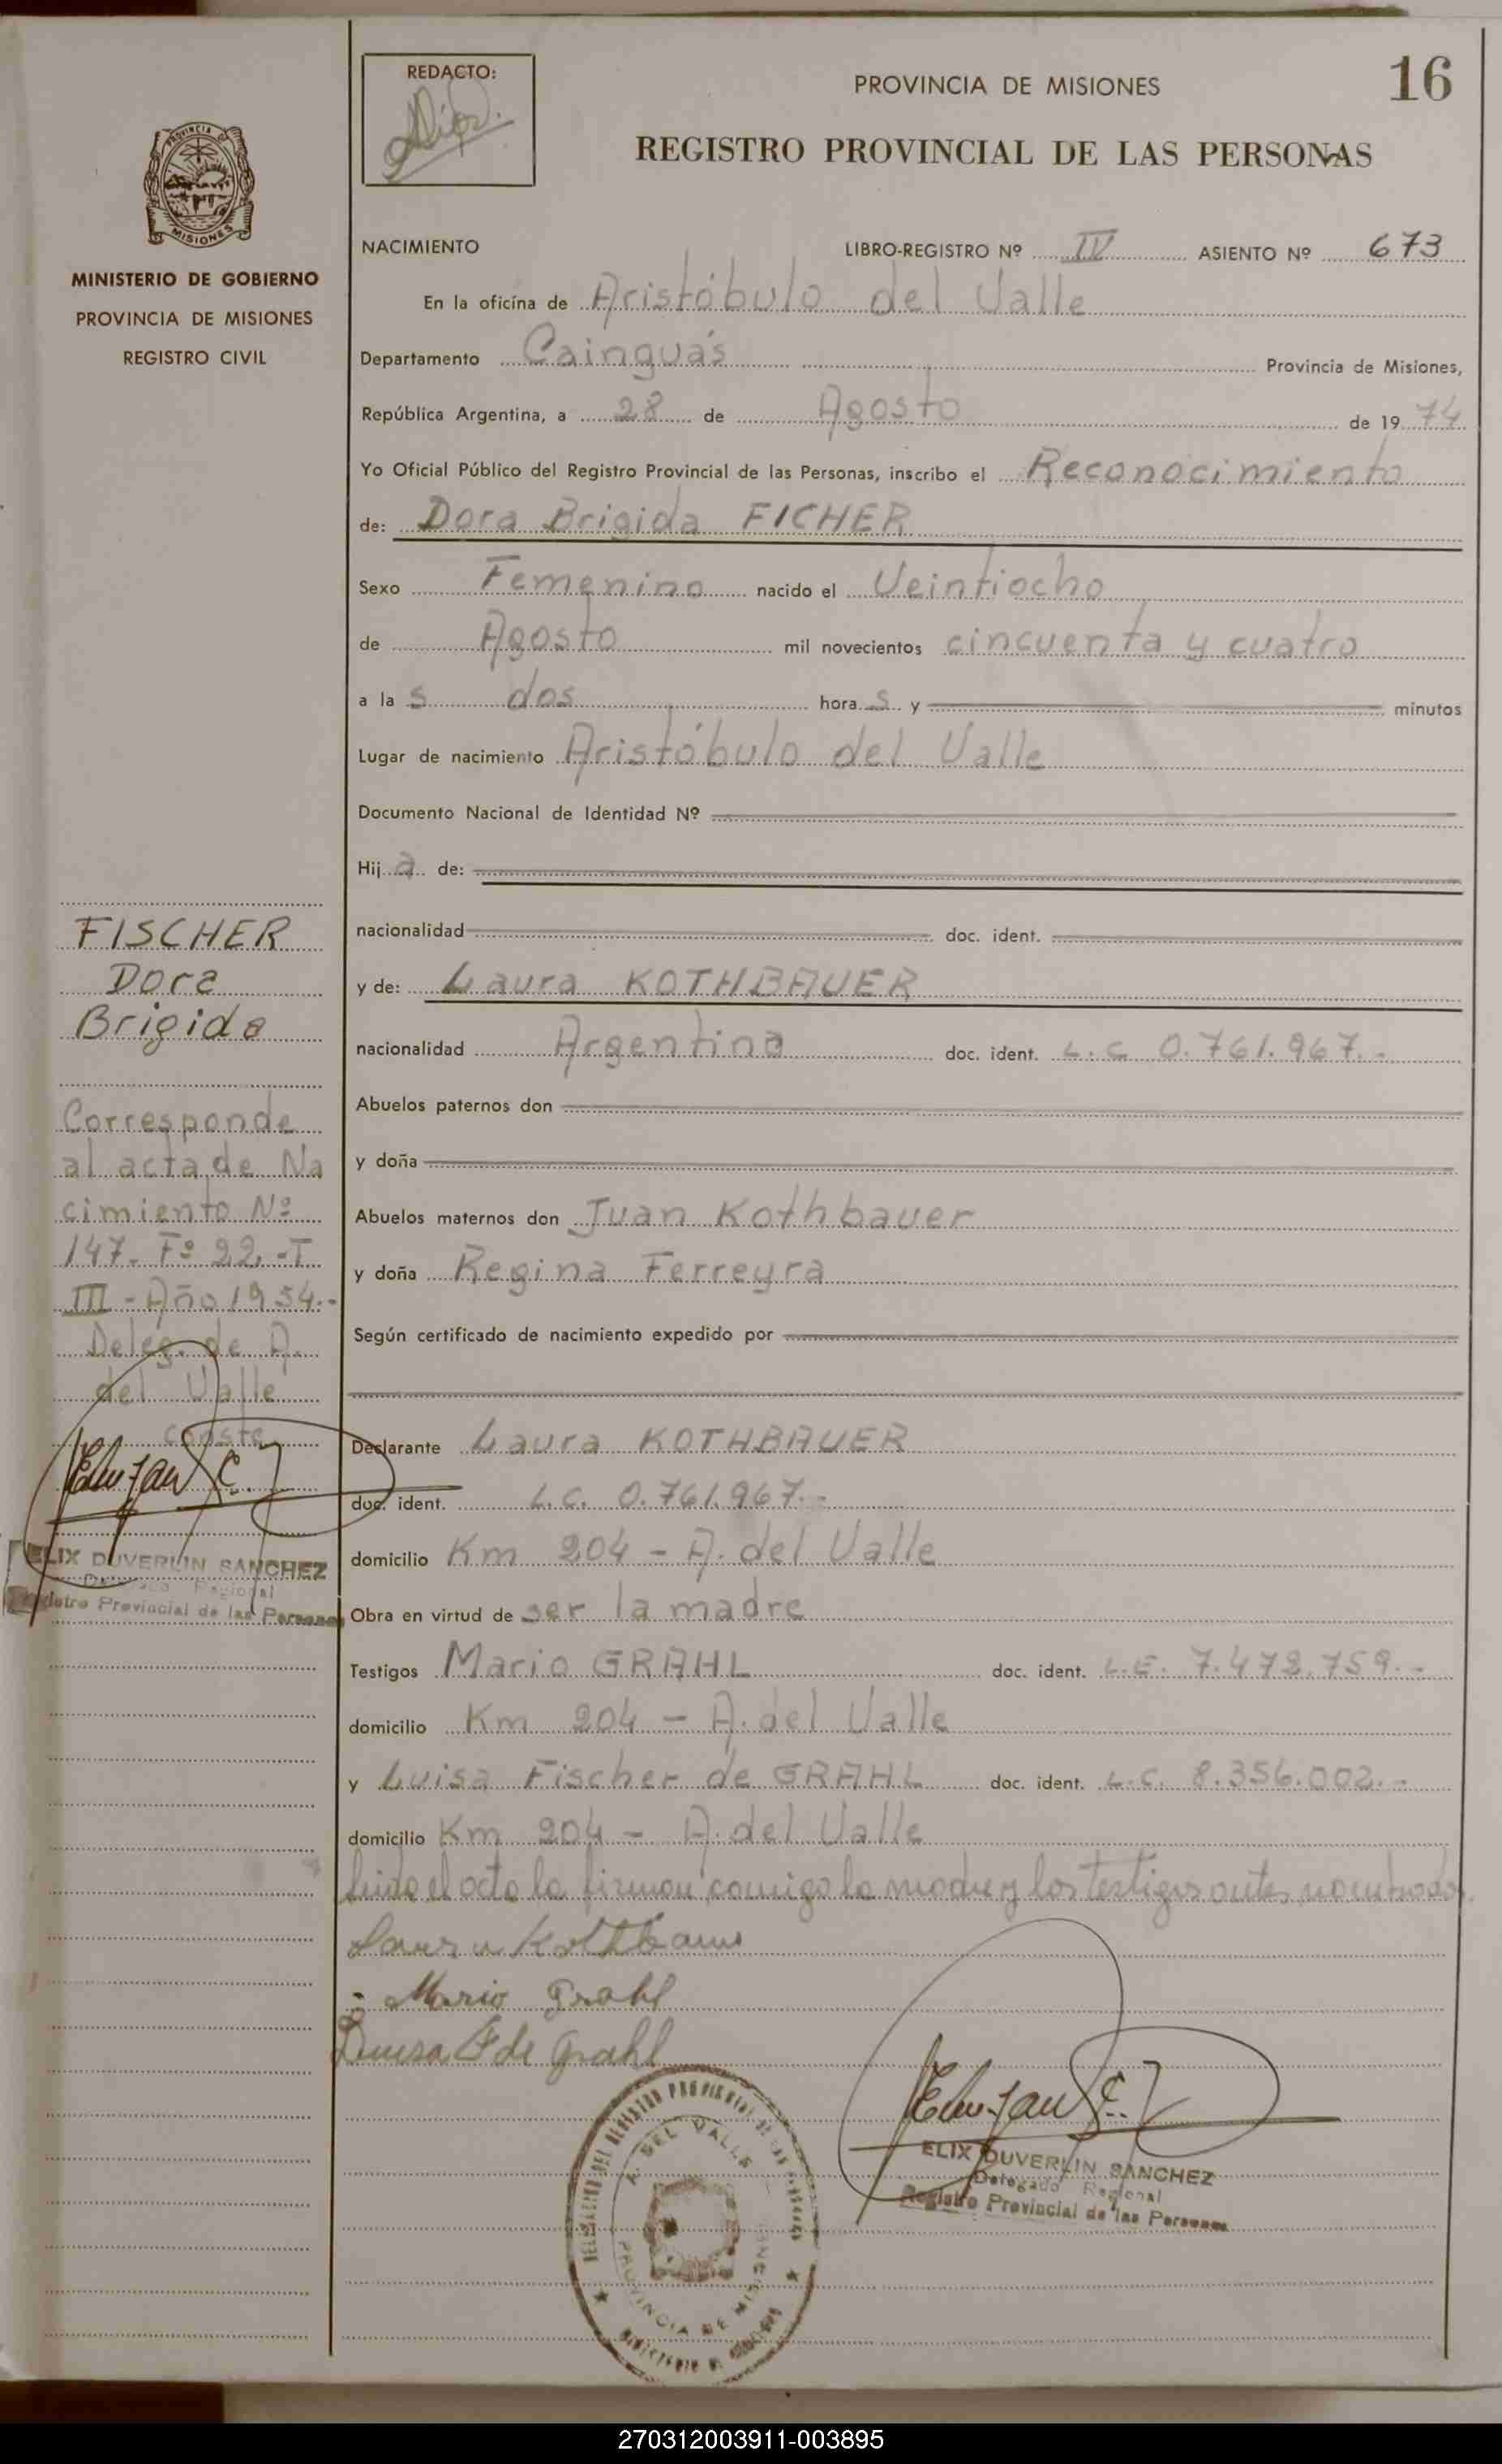 REDACTO:
PROVINCIA DE MISIONES
16
REGISTRO PROVINCIAL DE LAS PERSONAS
PROVINCIA DE
MISIONES
MINISTERIO DE GOBIERNO
PROVINCIA DE MISIONES
REGISTRO CIVIL
NACIMIENTO LIBRO-REGISTRO Nº IV ASIENTO Nº 673
En la oficina de Aristóbulo del Valle
Departamento Cainguás Provincia de Misiones,
República Argentina, a 28 de Agosto de 1974
Yo Oficial Público del Registro Provincial de las Personas, inscribo el Reconocimiento
de: Dora Brigida FICHER
Sexo Femenino nacido el Veintiocho
de Agosto mil novecientos cincuenta y cuatro
a las dos horas y minutos
Lugar de nacimiento Aristóbulo del Valle
Documento Nacional de Identidad Nº
Hija de:
nacionalidad doc. ident.
y de: Laura KOTHBAUER
nacionalidad Argentina doc. ident. L.C 0.761.967.-
Abuelos paternos don
y doña
Abuelos maternos don Juan Kothbauer
y doña Regina Ferreyra
Según certificado de nacimiento expedido por
Declarante Laura KOTHBAUER
doc. ident. L.C. 0.761.967.-
domicilio Km 204 - A. del Valle
Obra en virtud de ser la madre
Testigos Mario GRAHL doc. ident. L.E. 7.472.759.-
domicilio Km 204 - A. del Valle
y Luisa Fischer de GRAHL doc. ident. L.C. 8.356.002.-
domicilio Km 204 - A. del Valle
leida el acta la firman comigo la madre y los testigos antes nombrados.
Laura Kothbauer
Mario Grahl
Luisa F de Grahl
FISCHER
Dora
Brigida
Corresponde
al acta de Na
cimiento Nº
147- Fº 22.-T
III - Año 1954.-
Deleg. de A.
del Valle
conste
ELIX DUVERLIN SANCHEZ
Delegado Regional
Registro Provincial de las Personas
ELIX DUVERLIN SANCHEZ
Delegado Regional
Registro Provincial de las Personas
DELEGACION DEL REGISTRO PROVINCIAL DE LAS PERSONAS
A. DEL VALLE
PROVINCIA DE MISIONES
MINISTERIO DE GOBIERNO
270312003911-003895